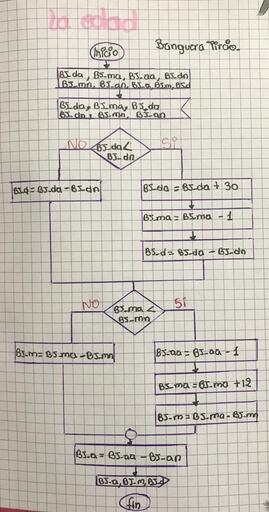 la edad
Banguera Tirao.
Inicio
BJ_da, BJ_ma, BJ_aa, BJ_dn
BJ_mn, BJ_an, BJ_a, BJ_m, BJ_d
BJ_da, BJ_ma, BJ_da
BJ_dn, BJ_mn, BJ_an
NO
BJ_da<
BJ_dn
Si
BJ_d = BJ_da - BJ_dn
BJ_da = BJ_da + 30
BJ_ma = BJ_ma - 1
BJ_d = BJ_da - BJ_dn
NO
BJ_ma <
BJ_mn
Si
BJ_m = BJ_ma - BJ_mn
BJ_aa = BJ_aa - 1
BJ_ma = BJ_ma + 12
BJ_m = BJ_ma - BJ_mn
BJ_a = BJ_aa - BJ_an
BJ_a, BJ_m, BJ_d
fin